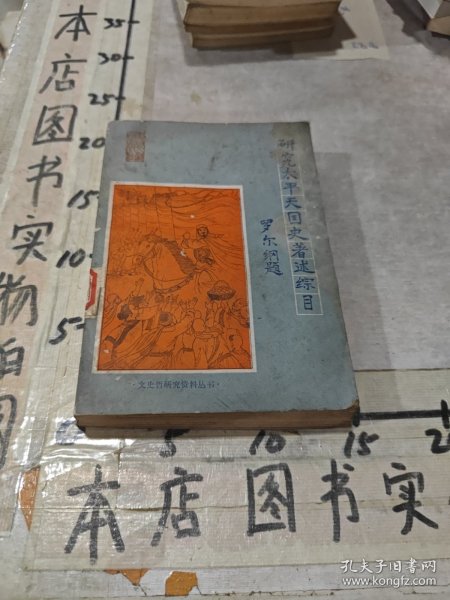 本店图书实物拍图
35
30
25
20
15
10
5
研究太平天国史著述综目
罗尔纲题
·文史哲研究资料丛书·
5
10
15
2
本店图书实
孔夫子旧书网
www.kongfz.com